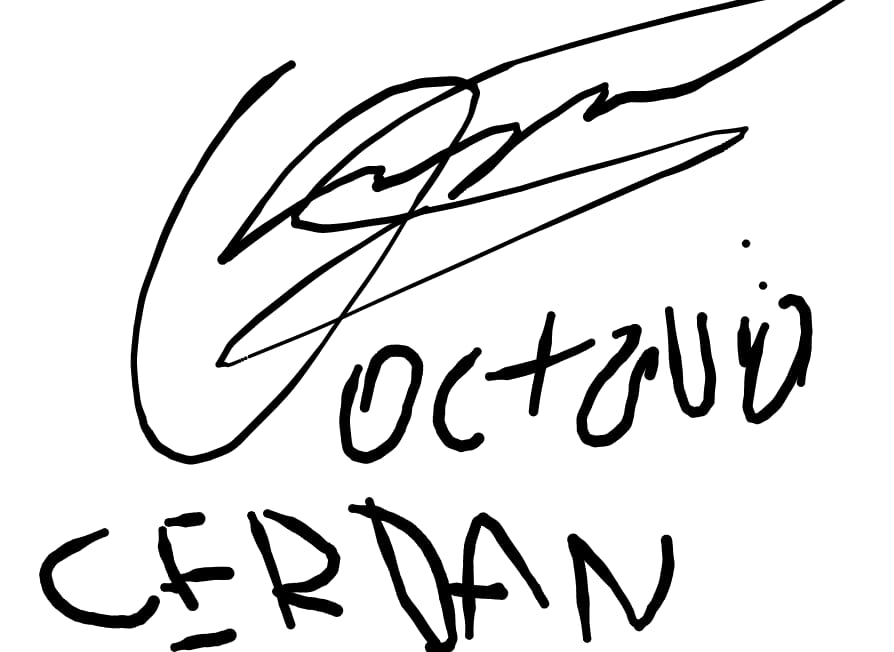 octavio
CERDAN